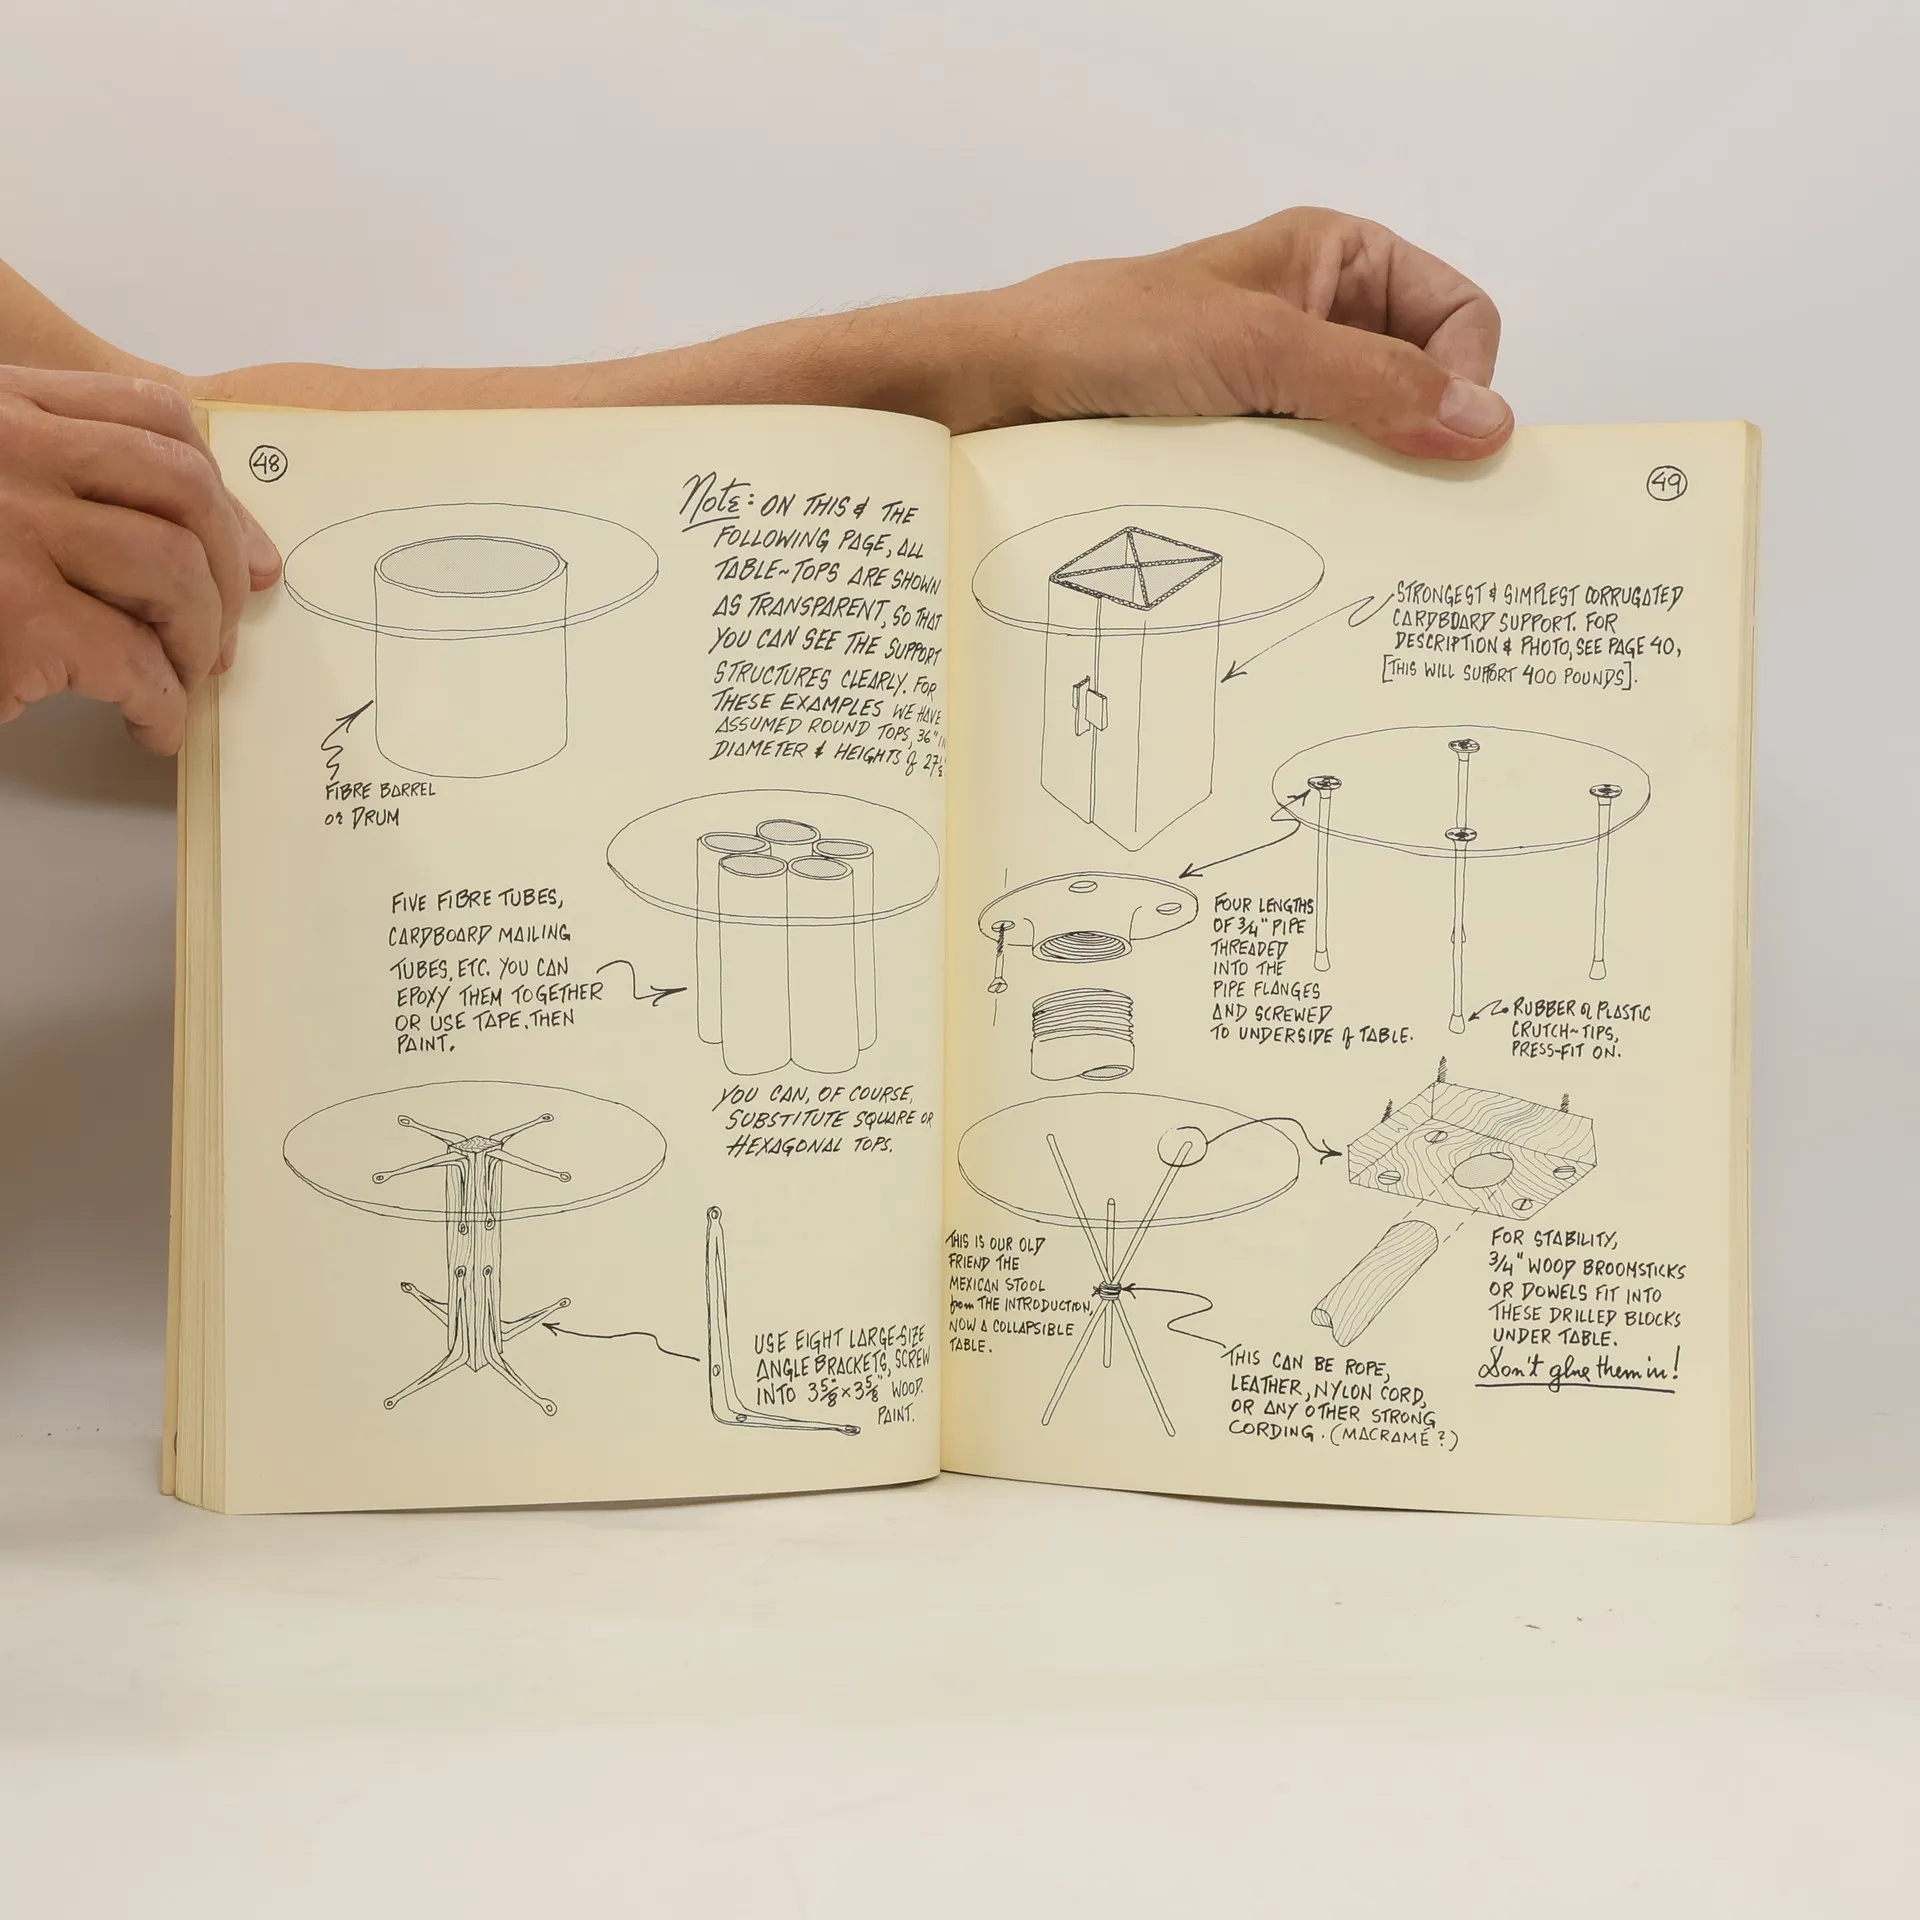 48
Note: ON THIS & THE
FOLLOWING PAGE, ALL
TABLE~TOPS ARE SHOWN
AS TRANSPARENT, SO THAT
YOU CAN SEE THE SUPPORT
STRUCTURES CLEARLY. FOR
THESE EXAMPLES WE HAVE
ASSUMED ROUND TOPS, 36"
DIAMETER & HEIGHTS of
FIBRE BARREL
or DRUM
FIVE FIBRE TUBES,
CARDBOARD MAILING
TUBES, ETC. YOU CAN
EPOXY THEM TOGETHER
OR USE TAPE, THEN
PAINT.
YOU CAN, OF COURSE,
SUBSTITUTE SQUARE OR
HEXAGONAL TOPS.
USE EIGHT LARGE-SIZE
ANGLE BRACKETS, SCREW
INTO 3 5/8" x 3 5/8" WOOD.
PAINT.
49
STRONGEST & SIMPLEST CORRUGATED
CARDBOARD SUPPORT. FOR
DESCRIPTION & PHOTO, SEE PAGE 40,
[THIS WILL SUPPORT 400 POUNDS].
FOUR LENGTHS
OF 3/4" PIPE
THREADED
INTO THE
PIPE FLANGES
AND SCREWED
TO UNDERSIDE of TABLE.
RUBBER or PLASTIC
CRUTCH~TIPS,
PRESS-FIT ON.
THIS IS OUR OLD
FRIEND THE
MEXICAN STOOL
from THE INTRODUCTION,
NOW A COLLAPSIBLE
TABLE.
THIS CAN BE ROPE,
LEATHER, NYLON CORD,
OR ANY OTHER STRONG
CORDING. (MACRAMÉ?)
FOR STABILITY,
3/4" WOOD BROOMSTICKS
OR DOWELS FIT INTO
THESE DRILLED BLOCKS
UNDER TABLE.
Don't glue them in!